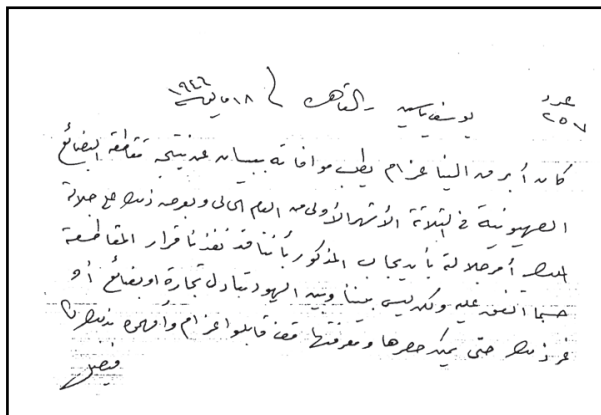 عدد
٢٥٧
يوسف ياسين - القاهرة / ١٨ مايو ١٩٤٦
كان أبرق الينا عزام يطلب موافاته ببيان عن نتيجة مقاطعة البضائع
الصهيونية في الثلاثة الأشهر الأولى من العام الحالي وبعرض ذلك على جلالة
الملك أمر جلالته بأن يجاب المذكور بأننا قد نفذنا قرار المقاطعة
حسبما اتفق عليه ولكن ليس بيننا وبين اليهود تبادل تجارة او بضائع أو
غير ذلك حتى يمكن حصرها ومعرفتها فقابلوا عزام وأفهموه بذلك
فيصل